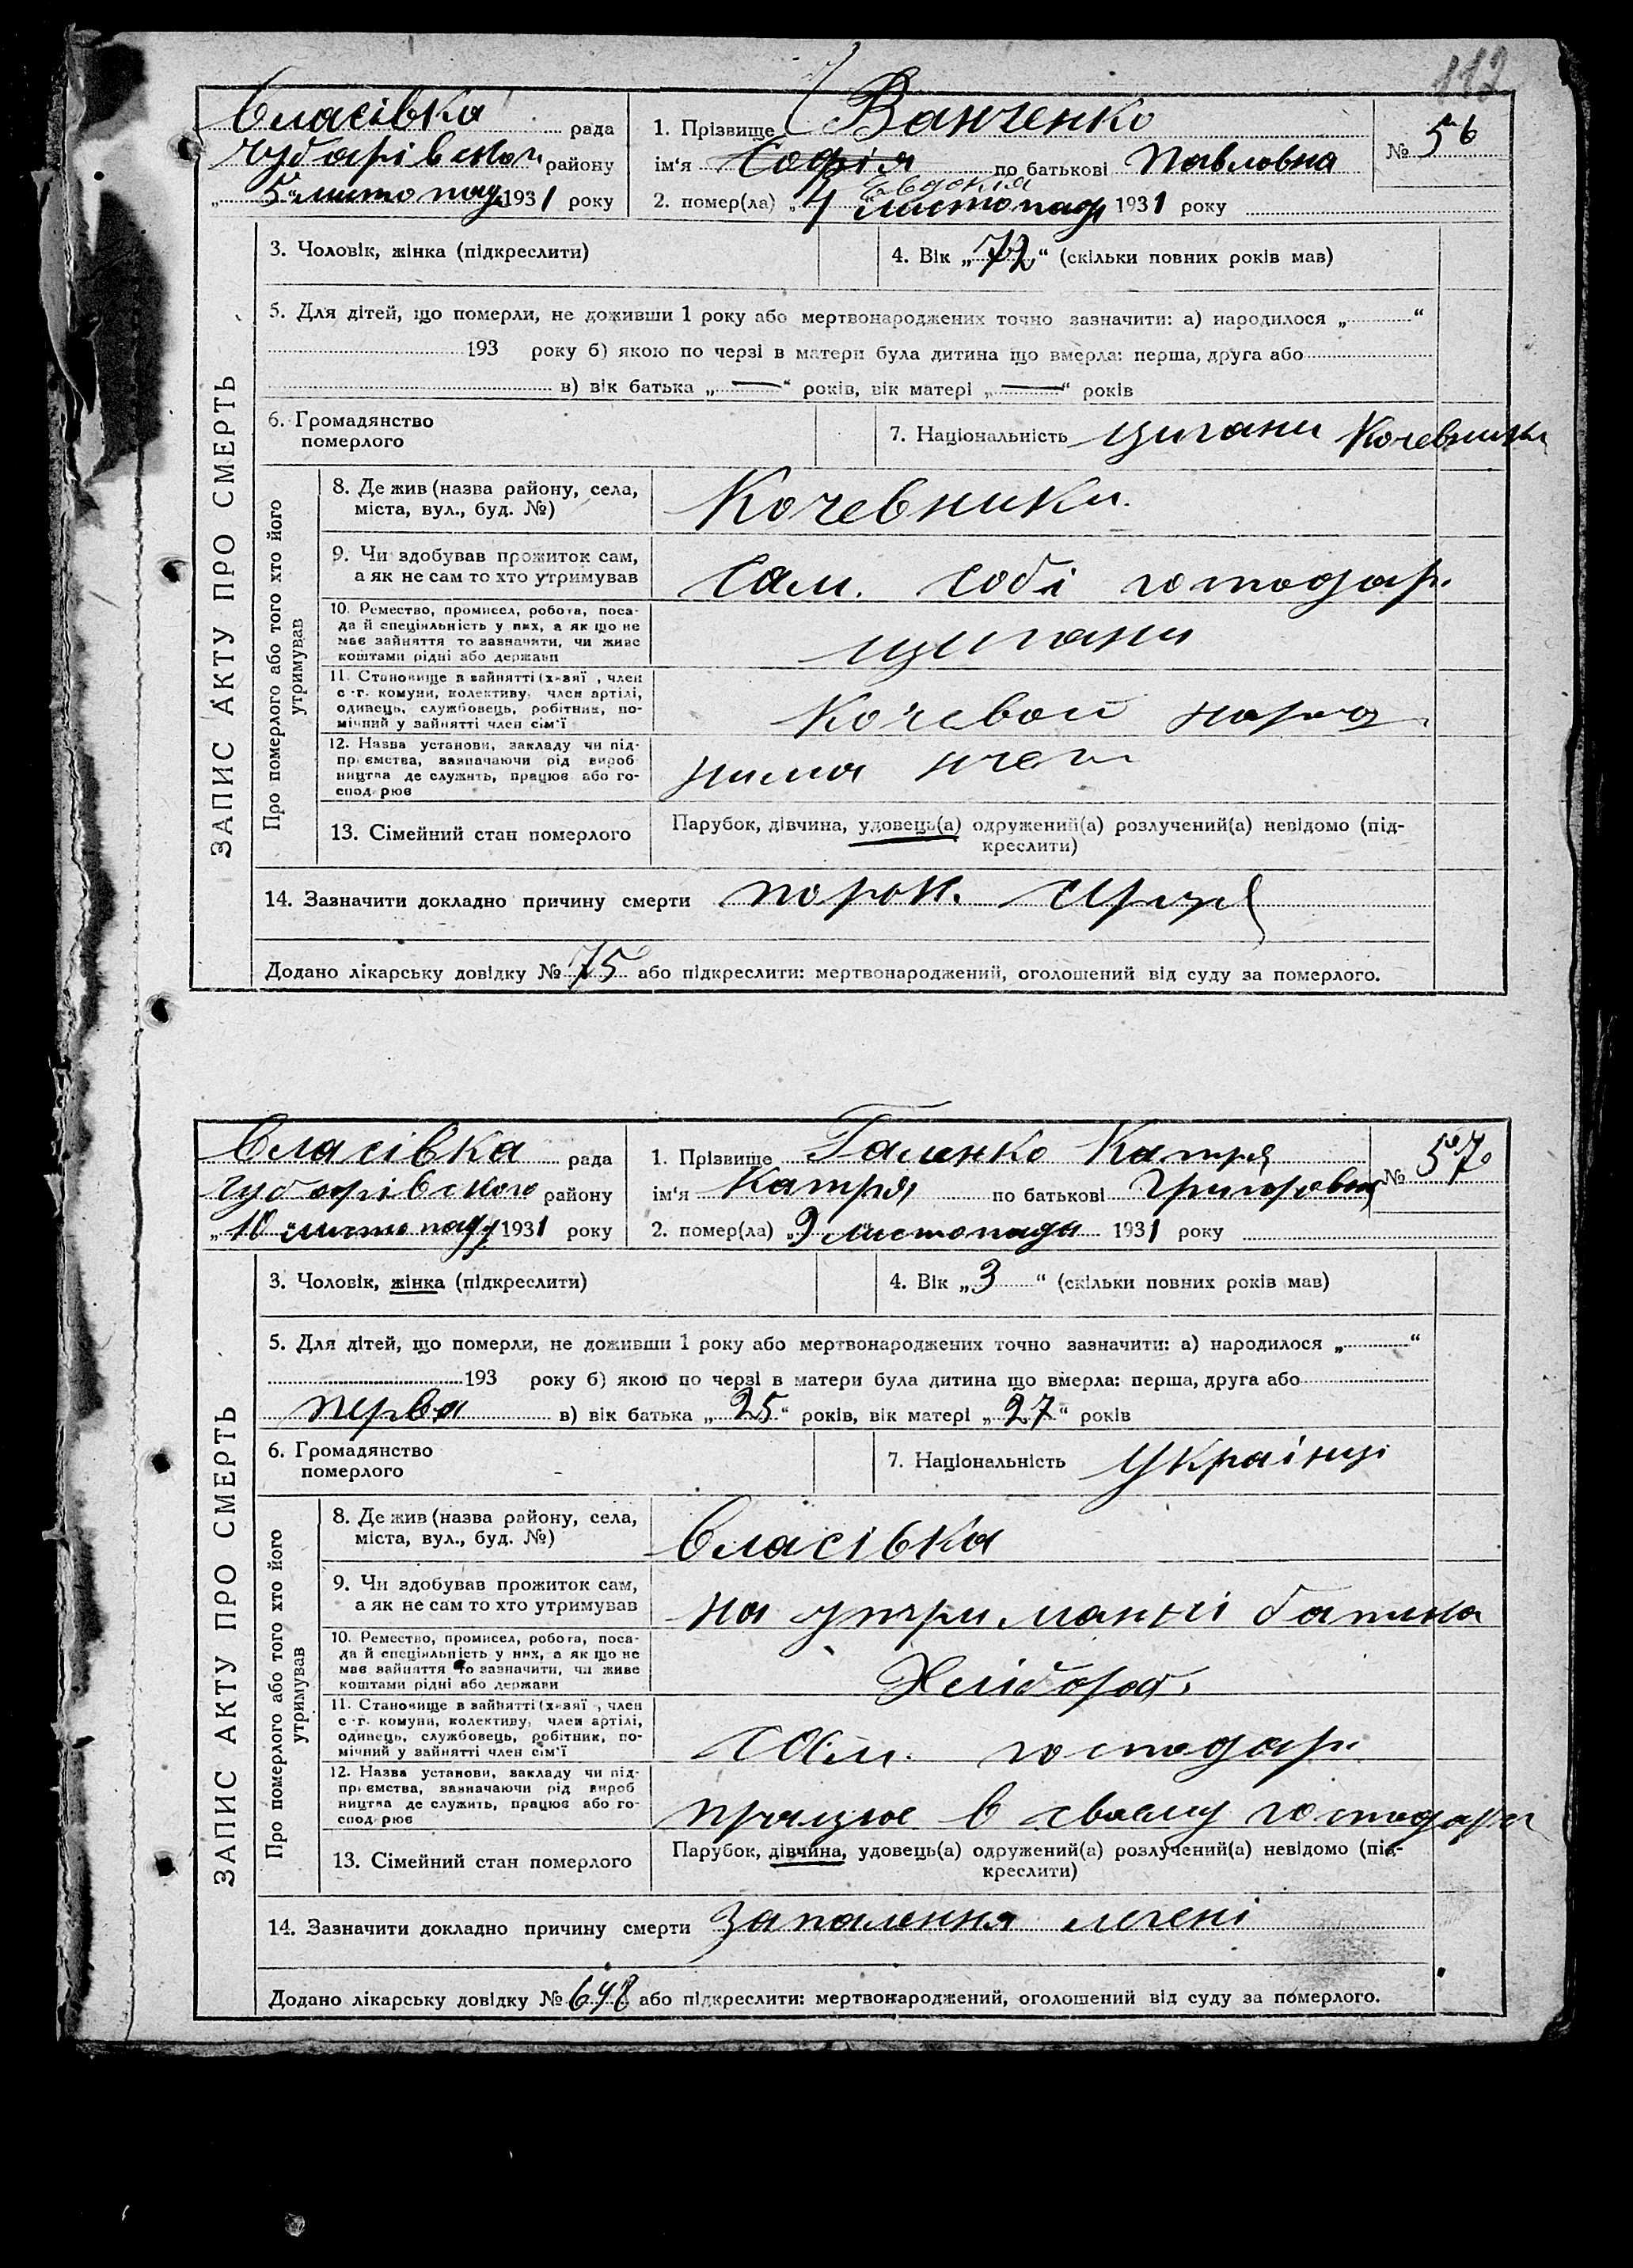 112
Власівка рада
Чубарівськог району
„5“ листопад 1931 року
1. Прізвище Ванченко
ім‘я Софія по батькові Павловна
Євдокія
2. помер(ла) „4“ листопад 1931 року
№ 56
ЗАПИС АКТУ ПРО СМЕРТЬ
3. Чоловік, жінка (підкреслити)
4. Вік „72“ (скільки повних років мав)
5. Для дітей, що померли, не доживши 1 року або мертвонароджених точно зазначити: а) народилося „ “
193 року б) якою по черзі в матери була дитина що вмерла: перша, друга або
в) вік батька „—“ років, вік матері „—“ років
6. Громадянство
померлого
7. Національність цигани Кочевники
Про померлого або того хто його
утримував
8. Де жив (назва району, села,
міста, вул., буд. №)
Кочевники.
9. Чи здобував прожиток сам,
а як не сам то хто утримував
Сам. собі господар.
10. Ремество, промисел, робота, поса-
да й спеціяльність у них, а як що не
має зайняття то зазначити, чи живе
коштами рідні або держави
цигани
11. Становище в зайнятті (хазяї , член
с.-г. комуни, колективу, член артілі,
одинець, службовець, робітник, по-
мічний у зайнятті член сім‘ї
Кочевой народ
12. Назва установи, закладу чи під-
приємства, зазначаючи рід вироб
ництва де служить, працює або го-
сподарює
нима
13. Сімейний стан померлого
Парубок, дівчина, удовець(а) одружений(а) розлучений(а) невідомо (під-
креслити)
14. Зазначити докладно причину смерти порок. серця
Додано лікарську довідку № 75 або підкреслити: мертвонароджений, оголошений від суду за померлого.
Власівка рада
Чубарівського району
„10“ листопаду 1931 року
1. Прізвище Галенко Катря
ім‘я Катря по батькові Григоровна
2. помер(ла) „9“ листопада 1931 року
№ 57
ЗАПИС АКТУ ПРО СМЕРТЬ
3. Чоловік, жінка (підкреслити)
4. Вік „3“ (скільки повних років мав)
5. Для дітей, що померли, не доживши 1 року або мертвонароджених точно зазначити: а) народилося „ “
193 року б) якою по черзі в матери була дитина що вмерла: перша, друга або
перва в) вік батька „25“ років, вік матері „27“ років
6. Громадянство
померлого
7. Національність Українці
Про померлого або того хто його
утримував
8. Де жив (назва району, села,
міста, вул., буд. №)
Власівка
9. Чи здобував прожиток сам,
а як не сам то хто утримував
на утриманні батька
10. Ремество, промисел, робота, поса-
да й спеціяльність у них, а як що не
має зайняття то зазначити, чи живе
коштами рідні або держави
Хлібороб.
11. Становище в зайнятті (хазяї , член
с.-г. комуни, колективу, член артілі,
одинець, службовець, робітник, по-
мічний у зайнятті член сім‘ї
Сам. господар.
12. Назва установи, закладу чи під-
приємства, зазначаючи рід вироб
ництва де служить, працює або го-
сподарює
працює в своєму господарст
13. Сімейний стан померлого
Парубок, дівчина, удовець(а) одружений(а) розлучений(а) невідомо (під-
креслити)
14. Зазначити докладно причину смерти запалення легені
Додано лікарську довідку № 648 або підкреслити: мертвонароджений, оголошений від суду за померлого.